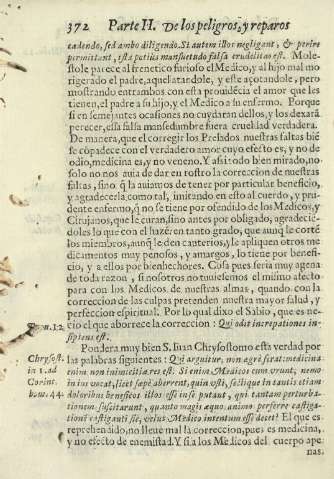 372 Parte II. De los peligros, y reparos
cadendo, sed ambo diligendo. Si autem illos negligant, & perire
permittant, esta potius mansuetudo falsa crudelitas est. Mole-
stole parece al frenetico furioso el Medico, y al hijo mal mo
rigerado el padre, aquel atandole, y este açotandole, pero
mostrando entrambos con esta prouidẽcia el amor que les
tienen, el padre a su hijo, y el Medico a su enfermo. Porque
si en semejantes ocasiones no cuydaran dellos, y los dexarã
perecer, essa falsa mansedumbre fuera crueldad verdadera.
De manera, que el corregir los Prelados nuestras faltas biẽ
se cõpadece con el verdadero amor cuyo efecto es, y no de
odio, medicina es, y no veneno. Y assi todo bien mirado, no
solo no nos auia de dar en rostro la correccion de nuestras
faltas, sino q̃ la auiamos de tener por particular beneficio,
y agradecerla como tal, imitando en esto al cuerdo, y pru
dente enfermo, q̃ no se tiene por ofendido de los Medicos, y
Cirujanos, que le curan, sino antes por obligado, agradeciẽ-
doles lo que con el hazẽr en tanto grado, que aunq̃ le cortẽ
los miembros, aunq̃ le den cauterios, y le apliquen otros me
dicamentos muy penosos, y amargos, lo tiene por benefi-
cio, y a ellos por bienhechores. Cosa pues seria muy agena
de toda razon, si nosotros no tuuiesemos el mismo afecto
para con los Medicos de nuestras almas, quando con la
correccion de las culpas pretenden nuestra mayor salud, y
perfeccion espiritual. Por lo qual dixo el Sabio, que es ne-
cio el que aborrece la correccion: Qui odit increpationes in-
sipiens est.
Prou. 12.
Pondera muy bien S. Iuan Chrysostomo esta verdad por
las palabras siguientes: Qui arguitur, non ægrè ferat: medicina
enim non inimicitia res est. Si enim Medicos cum vrunt, nemo
in ius vocat, licet sæpè aberrent, quin vsti, sectique in tantis etiam
doloribus beneficos illos esse putant, qui tantam perturba-
tionem suscitarunt, quanto magis æquo animo perferre castiga-
tionẽ castiganti sic, velus Medico intentum esse decet? El que es
reprehendido, no lleue mal la correccion, pues es medicina,
y no efecto de enemistad. Y si a los Medicos del cuerpo ape-
nas.
Chrysost.
in 1. ad
Corint.
hom. 44.